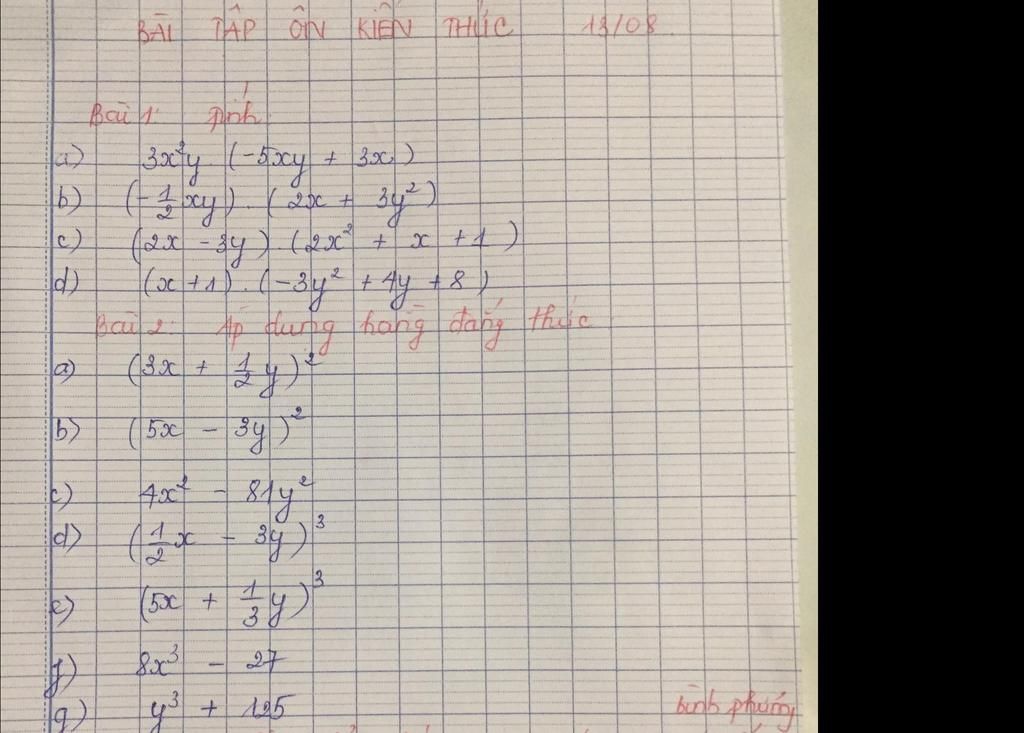 BÀI TẬP ÔN KIẾN THỨC 13/08
Bài 1: Tính
a) 3x²y . (-5xy + 3x)
b) (-1/2 xy) . (2x + 3y²)
c) (2x - 3y) . (2x² + x + 1)
d) (x + 1) . (-3y² + 4y + 8)
Bài 2: Áp dụng hằng đẳng thức
a) (3x + 1/2 y)²
b) (5x - 3y)²
c) 4x² - 81y²
d) (1/2 x - 3y)³
e) (5x + 1/3 y)³
f) 8x³ - 27
g) y³ + 125
bình phương